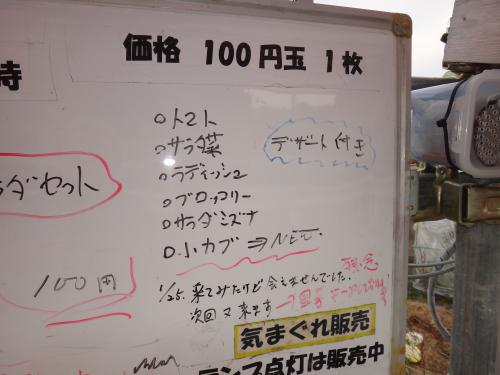 価格 100円玉 1枚
時
○トマト
○サラダ菜
デザート付き
○ラディッシュ
○ブロッコリー
○サラダミズナ
○小カブ⇒NEW
ラダセット
100円
1/25. 来てみたけど会えませんでした。残念
次回又来ます
気まぐれ販売
ランプ点灯は販売中